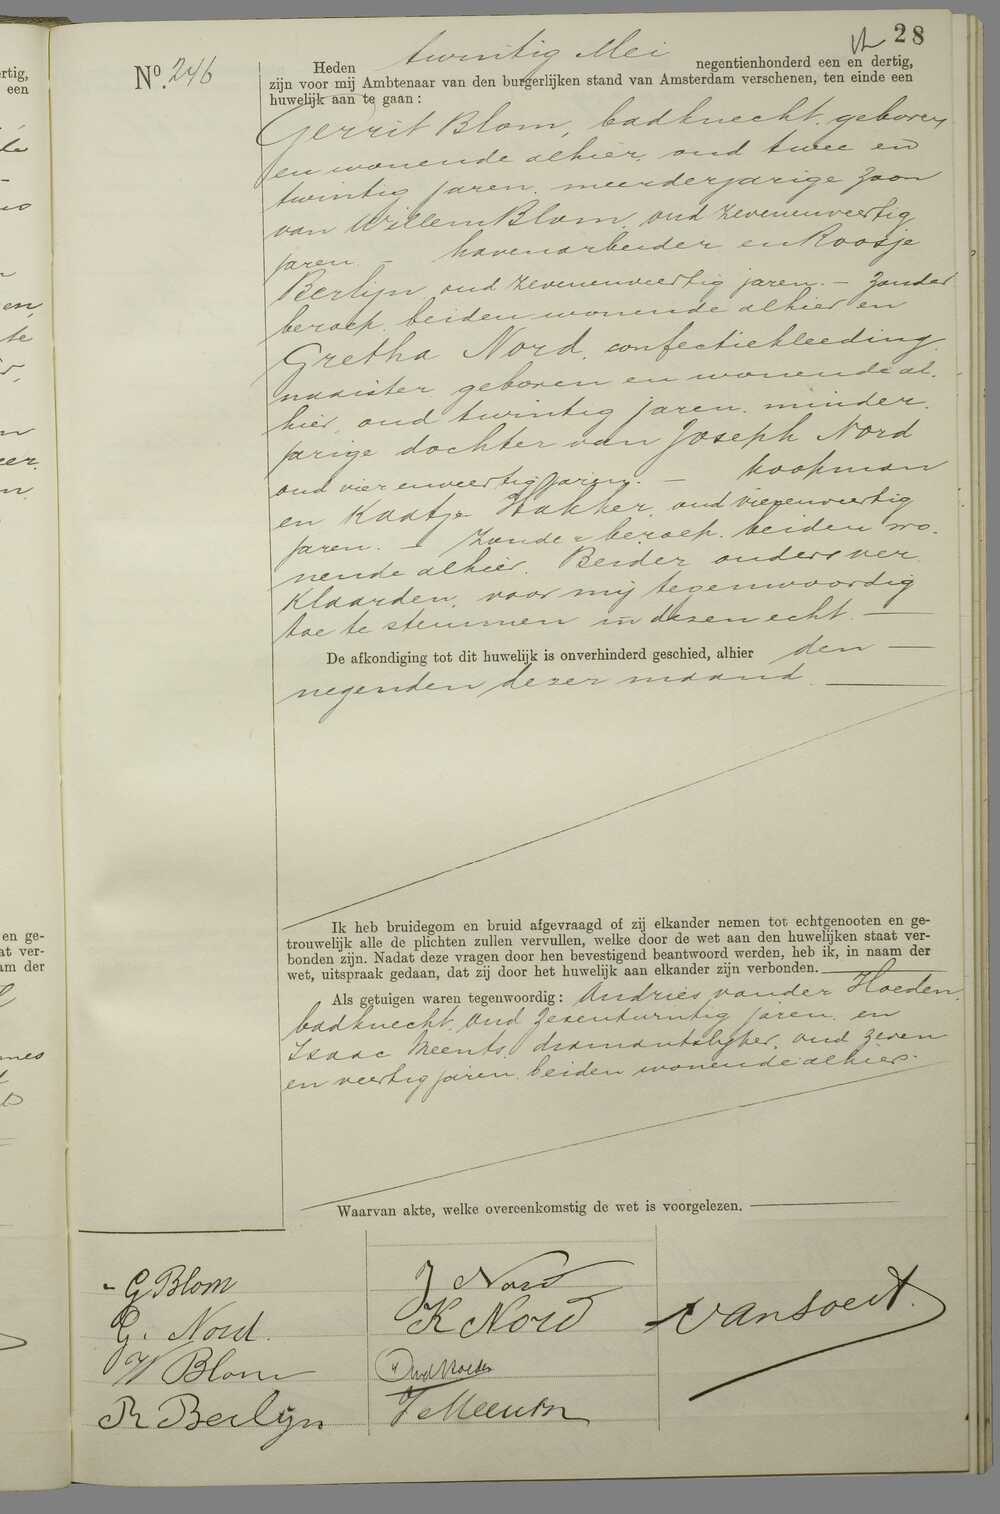 28
Nº. 246
Heden twintig Mei negentienhonderd een en dertig,
zijn voor mij Ambtenaar van den burgerlijken stand van Amsterdam verschenen, ten einde een
huwelijk aan te gaan:
Gerrit Blom, badknecht, geboren
en wonende alhier, oud twee en
twintig jaren, meerderjarige zoon
van Willem Blom, oud zevenenveertig
jaren — havenarbeider en Roosje
Berlijn oud zevenenveertig jaren — zonder
beroep, beiden wonende alhier en
Gretha Nord, confectiekleeding
naaister geboren en wonende al-
hier, oud twintig jaren, minder-
jarige dochter van Joseph Nord
oud vier enveertig jaren — koopman
en Kaatje Hakker, oud vierenveertig
jaren — zonder beroep, beiden wo-
nende alhier. Beider ouders ver
klaarden, voor mij tegenwoordig
toe te stemmen in dezen echt. —
De afkondiging tot dit huwelijk is onverhinderd geschied, alhier den —
negenden dezer maand. —
Ik heb bruidegom en bruid afgevraagd of zij elkander nemen tot echtgenooten en ge-
trouwelijk alle de plichten zullen vervullen, welke door de wet aan den huwelijken staat ver-
bonden zijn. Nadat deze vragen door hen bevestigend beantwoord werden, heb ik, in naam der
wet, uitspraak gedaan, dat zij door het huwelijk aan elkander zijn verbonden.
Als getuigen waren tegenwoordig: Andries van der Hoeden,
badknecht, oud zesentwintig jaren, en
Isaac Meents, diamantslijper, oud zeven
en veertig jaren, beiden wonende alhier.
Waarvan akte, welke overeenkomstig de wet is voorgelezen.
G Blom
G. Nord.
W Blom
R Berlijn
J Nord
K Nord
I Meents